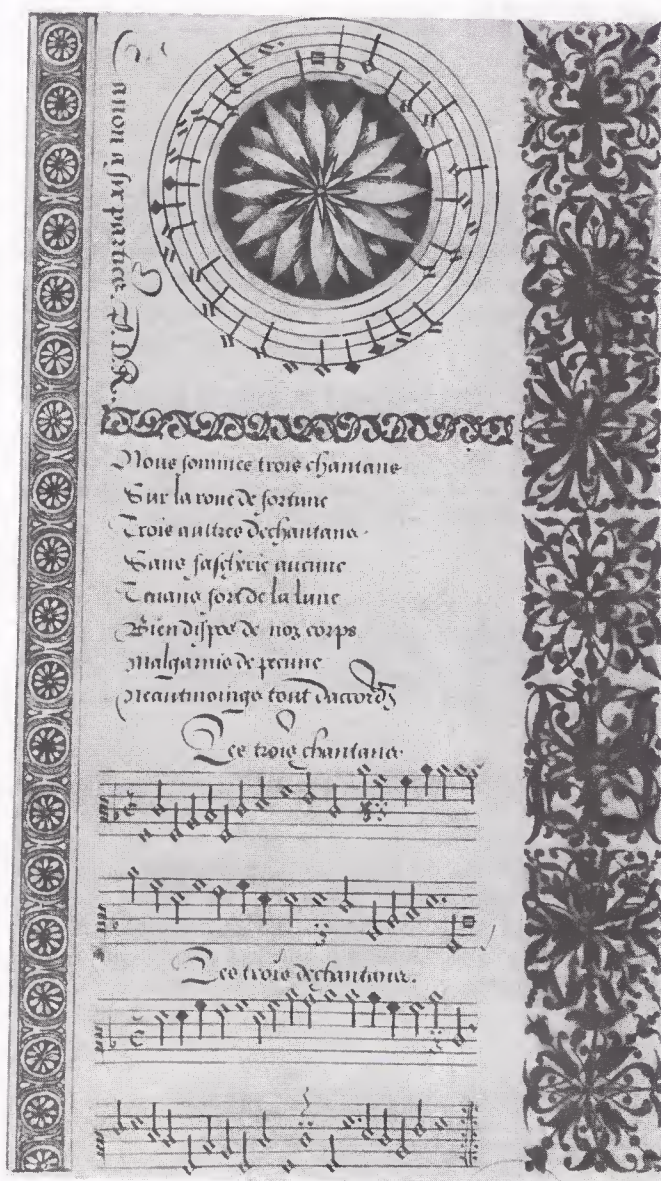 Canon a six parties. A D R.
Nous sommes trois chantans
Sur la roue de fortune
Trois aultres dechantans
Sans fascherie aucune
Tenans fort de la lune
Bien dispos de noz corps
malgarnis de pecune
neantmoings tout daccordz
Les trois chantans
Les trois dechantans.